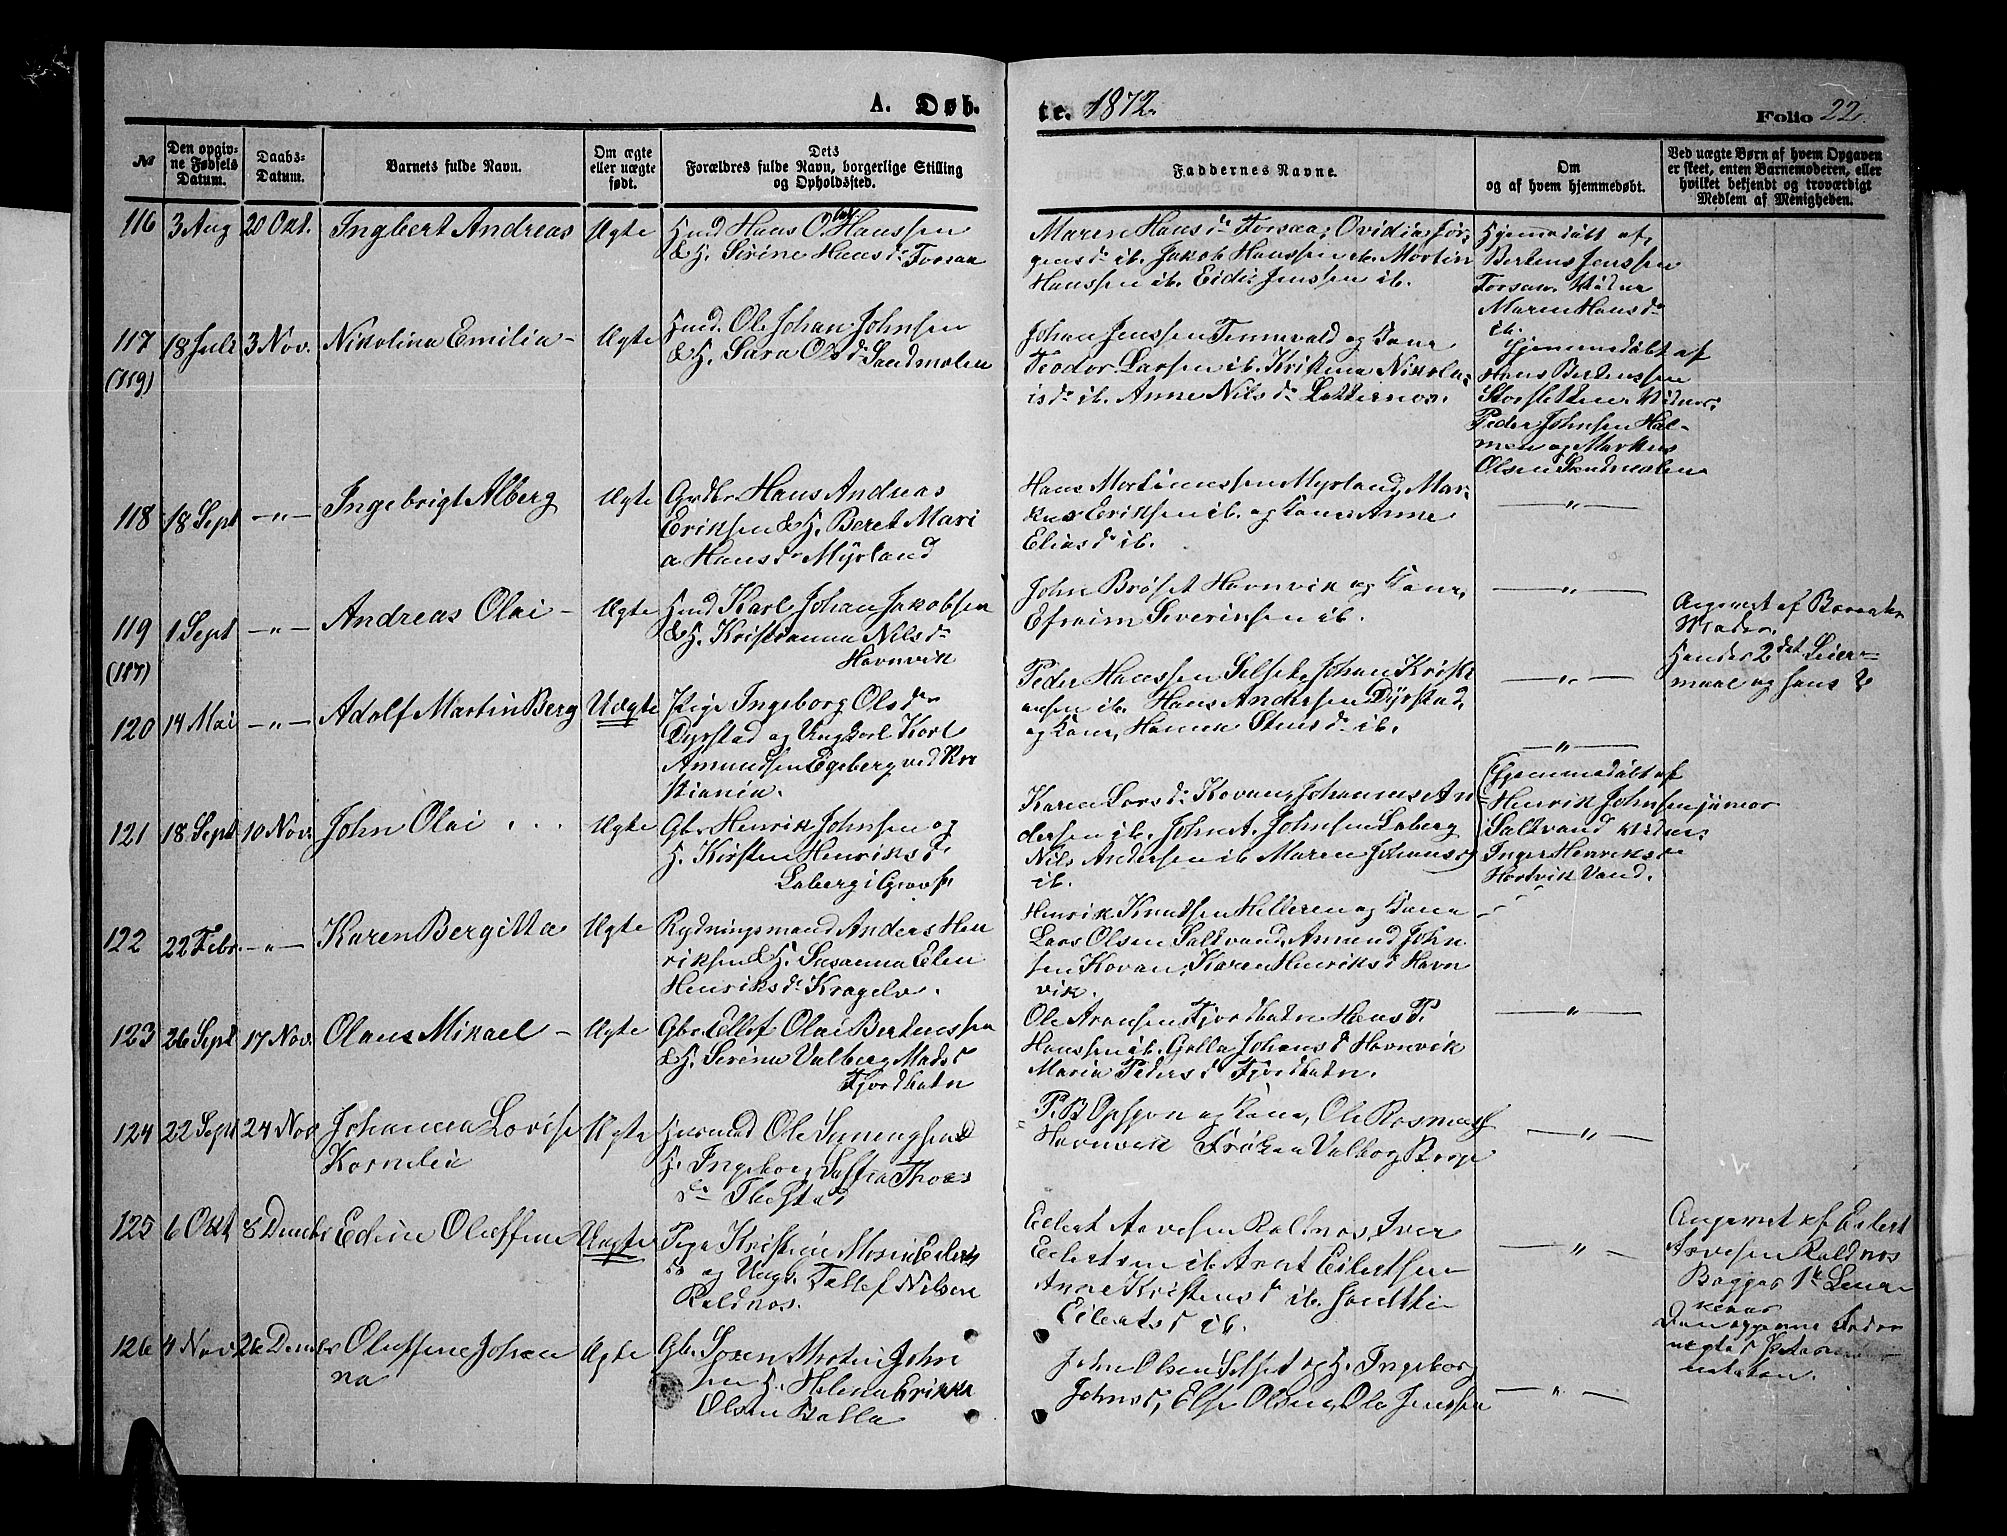 A. Døb.
te. 1872.
Folio 22.
№
Den opgiv-
ne Fødsels
Datum.
Daabs-
Datum.
Barnets fulde Navn.
Om ægte
eller uægte
født.
Dets
Forældres fulde Navn, borgerlige Stilling
og Opholdssted.
Faddernes Navne.
Om
og af hvem hjemmedøbt.
Ved uægte Børn af hvem Opgaven
er skeet, enten Barnemoderen, eller
hvilket bekjendt og troværdigt
Medlem af Menigheden.
116 3 Aug 20 Okt. Ingbert Andreas Ægte
Hmd Hans Olai Hanssen
& H. Sirine Hansdr Forsaa
Maren Hansdr Forsaa, Ovidia Jør-
gensd ib. Jakob Hanssen ib. Mortin
Hanssen ib. Eidis Jenssen ib.
Hjemmedøbt af
Bertens Jenssen
Forsaa. Vidne
Maren Hansdr
ib.
117 (119) 18 Juli 3 Nov. Nikolina Emilia - Ægte
Hmd. Ole Johan Johnsen
& H. Sara Olsdr Sandmolen
Johan Jenssen Tennvald og Kone
Teodor Larsen ib. Kristina Nikola-
isdr ib. Anne Nilsdr
Hjemmedøbt af
Hans Bertenssen
Storsletten Vidner:
Peder Johnsen Hol-
men og Markus
Olsen Sandmolen
118 18 Sept -"- Ingebrigt Alberg Ægte
Grdbr Hans Andreas
Eriksen & H. Beret Mari
a Hansdr Myrland
Hans Mortinussen Myrland, Mar-
kus Eriksen ib. og Kone Anne
Eliasd ib.
-"-
119 (117) 1 Sept -"- Andreas Olai - Ægte
Hmd Karl Johan Jakobsen
& H. Kristianna Nilsdr
Havnvik
John Brøset Havnvik og Kone,
Efraim Severinsen ib.
-"-
120 14 Mai -"- Adolf Martin Berg Uægte
Pige Ingeborg Olsdr
Dyrstad og Ungkarl Karl
Amundsen Egeberg ved Kri
stiania.
Peder Hanssen Selset Johan Kristi
ansen ib. Hans Andersen Dyrstad,
og Kone, Hanna Stensdr ib.
-"-
-"-
Angivet af Barnets
Moder.
Hendes 2det Leier-
maal og hans ?
121 18 Sept 10 Nov. John Olai . . . Ægte
Gbr Henrik Johnsen og
H. Kirsten Henriksdr
Laberg i Gravf.
Karen Larsdr Kovan, Johannes An
dersen ib. John A. Johnsen Laberg
Nils Andersen ib Maren Johansd
ib.
Hjemmedøbt af
Henrik Johnsen junior
Saltvand Vidner:
Inger Henriksdr
Hartvik Vand.
122 22 Febr. -"- Karen Bergitta Ægte
Rydningsmand Anders Hen
riksen & H. Susanna Elen
Henriksdr Kragelv.
Henrik Knudsen Helleren og Kone
Lars Olsen Saltvand, Amund John
sen Kovan, Karen Henriksd Havn
vik.
123 26 Sept 17 Nov. Olaus Mikael - Ægte
Gbr Ellef Olai Bertenssen
& H. Serina Valberg Madsd
Fjordbotn
Ole Arensen Fjordbotn Hans P.
Hanssen ib. Golla Johansd Havnvik
Maria Pedersd Fjordbotn.
-"-
124 22 Sept 24 Nov Johanna Lovise
Kornelia Ægte
Husmd Ole
H. Ingeborg
Thoes
P. B Opsjøn og Kone, Ole Rasmus
Havnvik Frøken Valborg Borge
-"-
125 6 Okt 8 Decmbr Edine Oluffine Uægte
Pige Kristine Marie Eilerts
og Ungk. Tollef Nilsen
Roldnos.
Eilert Arvesen Roldnos, Iver
Eilertsen ib Arnt Eilertsen
Anne Kristensd ib.
Eilertsd ib.
-"-
Angivet af Eilert
Arvesen Roldnos
Begges 1ste Leier-
maal
Den opgivne Fader
126 4 Nov. 26 Decmbr Oluffine Johan
na Ægte
Gbr. Søren Martin John
sen H. Helena Erikka
Olsen Balla
John Olsen Selset og H. Ingeborg
Johnsd, Else Olsen, Ola Jenssen
-"-